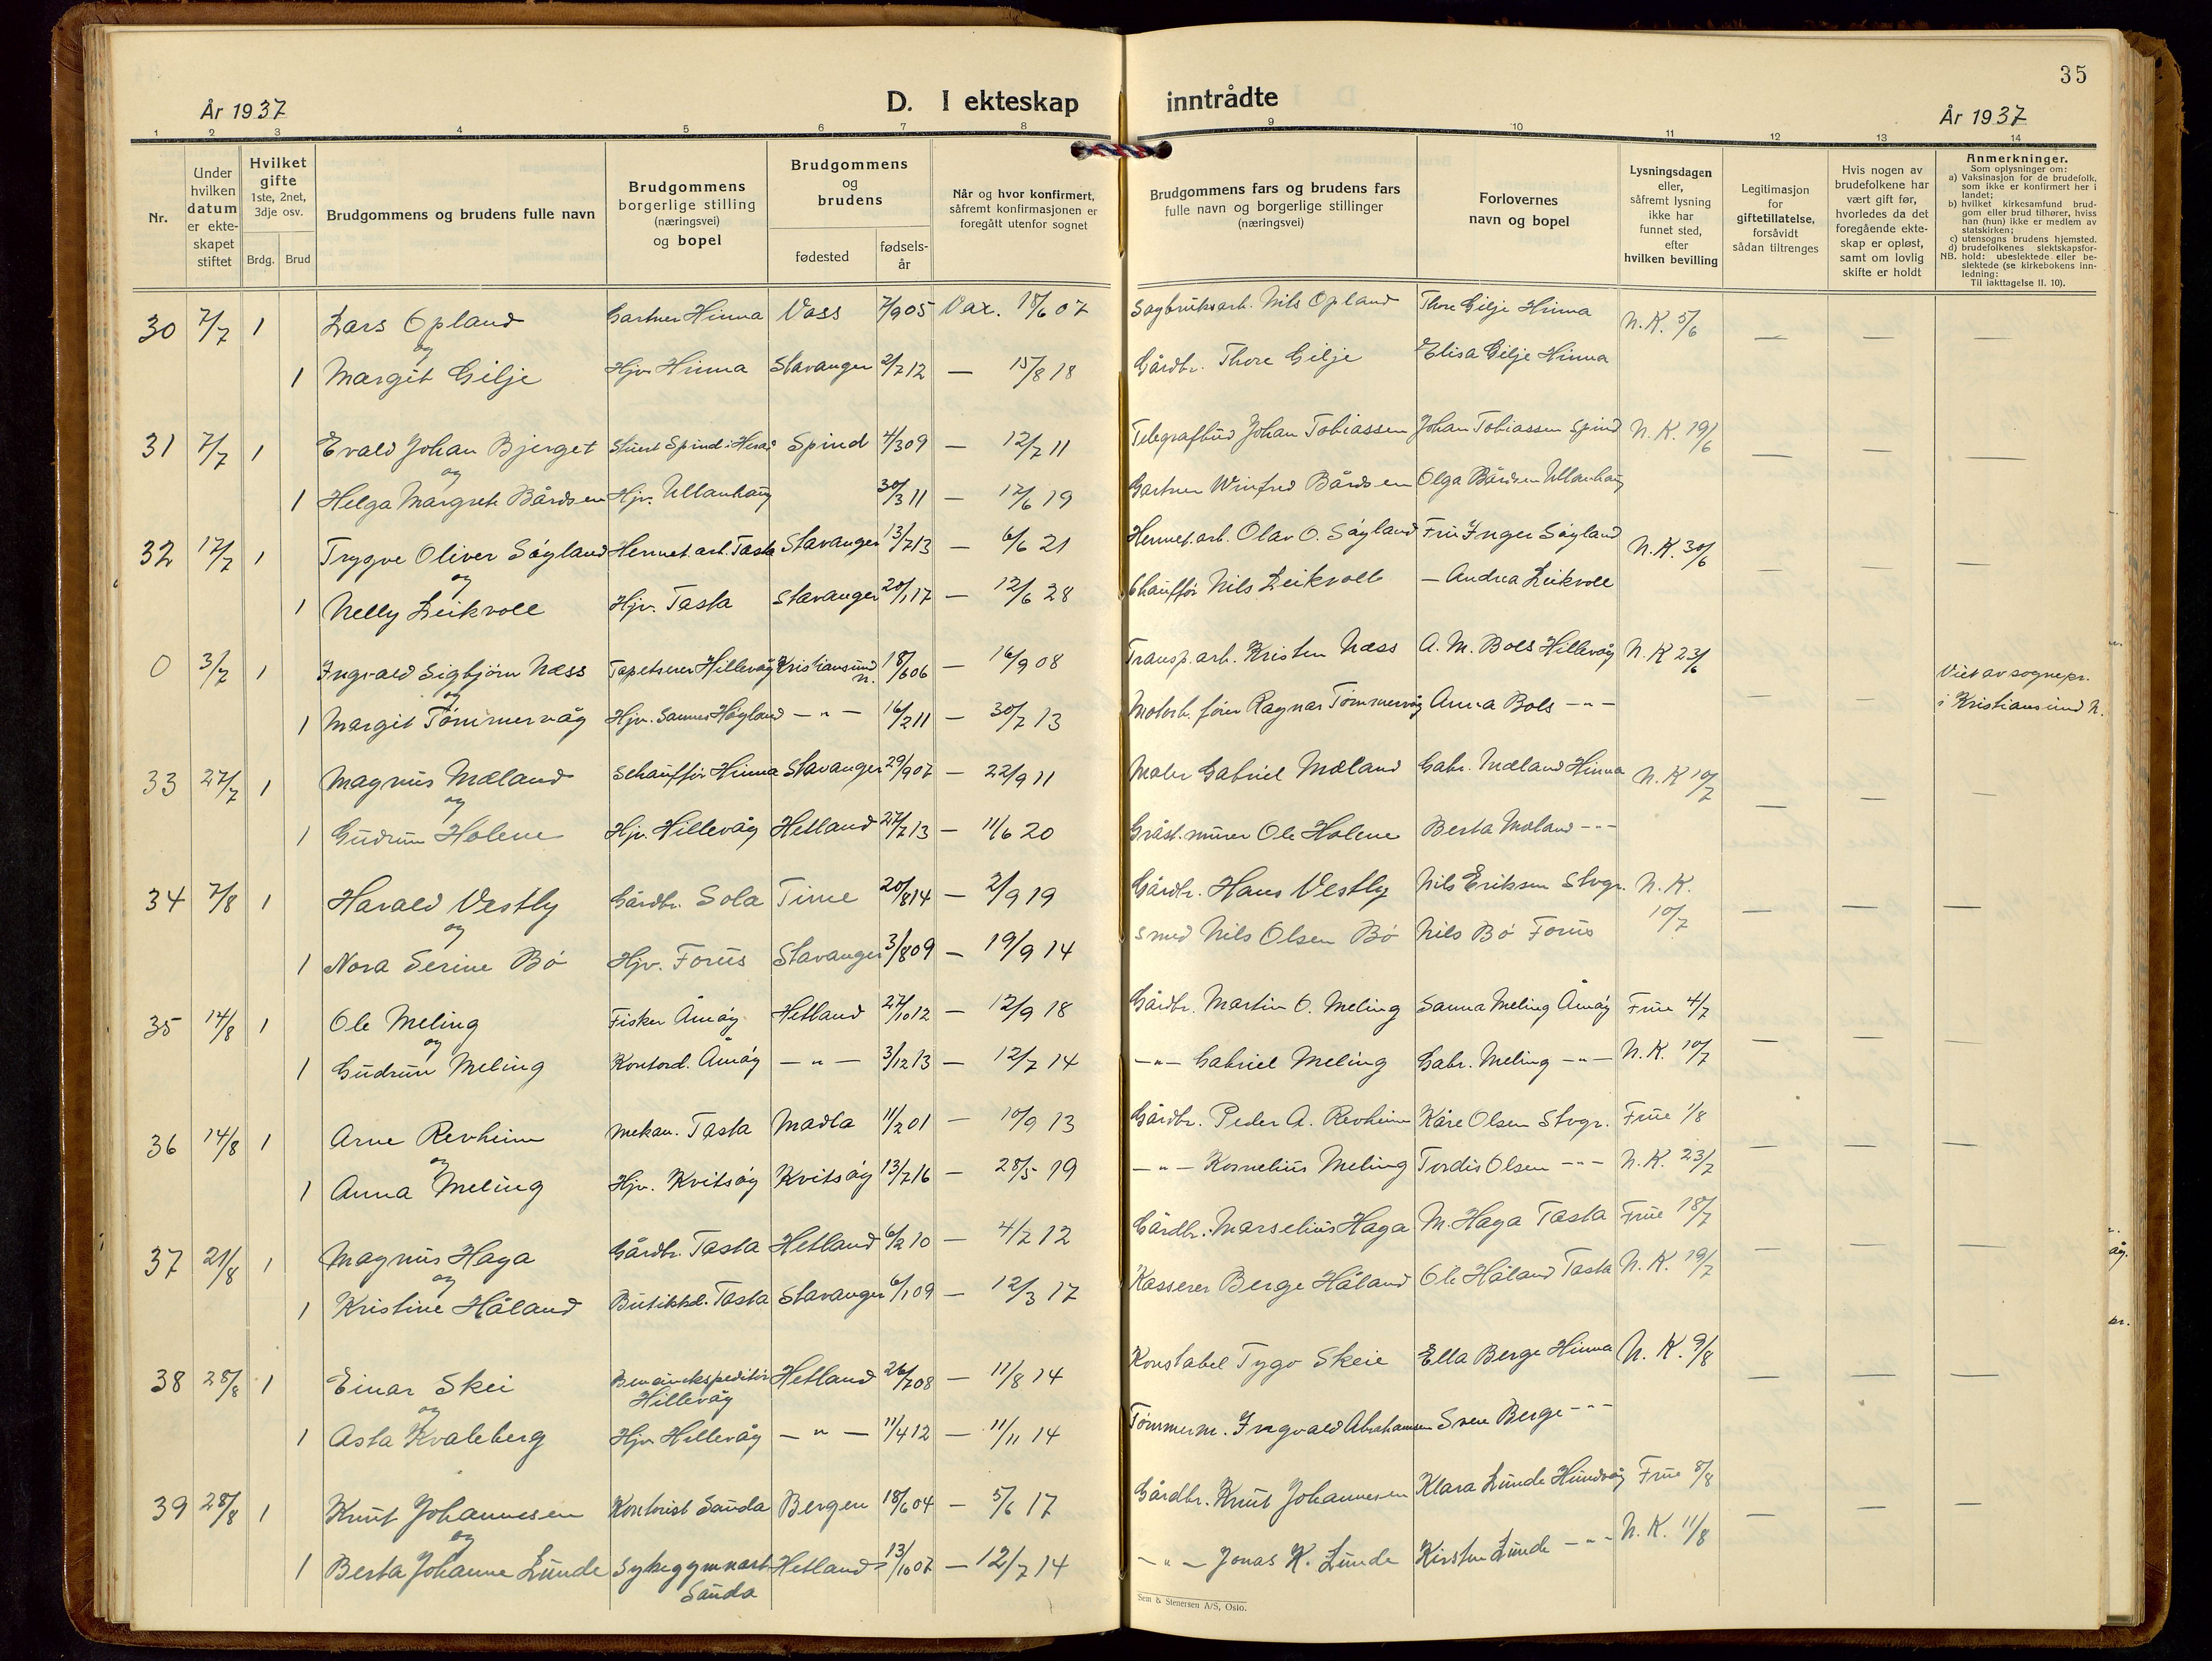 35
År 1937
D. I ekteskap inntrådte
År 1937
1 2 3 4 5 6 7 8 9 10 11 12 13 14
Nr.
Under hvilken datum er ekteskapet stiftet
Hvilket gifte 1ste, 2net, 3dje osv.
Brdg. Brud
Brudgommens og brudens fulle navn
Brudgommens borgerlige stilling (næringsvei) og bopel
Brudgommens og brudens
fødested
fødsels-år
Når og hvor konfirmert, såfremt konfirmasjonen er foregått utenfor sognet
Brudgommens fars og brudens fars fulle navn og borgerlige stillinger (næringsvei)
Forlovernes navn og bopel
Lysningsdagen eller, såfremt lysning ikke har funnet sted, efter hvilken bevilling
Legitimasjon for giftetillatelse, forsåvidt sådan tiltrenges
Hvis nogen av brudefolkene har vært gift før, hvorledes da det foregående ekteskap er opløst, samt om lovlig skifte er holdt
Anmerkninger.
Som oplysninger om:
a) Vaksinasjon for de brudefolk, som ikke er konfirmert her i landet;
b) hvilket kirkesamfund brudgom eller brud tilhører, hviss han (hun) ikke er medlem av statskirken;
c) utensogns brudens hjemsted.
d) brudefolkenes slektskapsforhold: ubeslektede eller beslektede (se kirkebokens innledning:
NB. Til iakttagelse II. 10).
30 7/7 1 Lars Opland Gartner Hinna Voss 7/9 05 Vax. 18/6 07 Sagbruksarb. Nils Opland Thore Gilje Hinna N. K. 5/6 — — —
og
1 Margit Gilje Hjv. Hinna Stavanger 2/7 12 — 15/8 18 Gårdbr. Thore Gilje Elisa Gilje Hinna
31 7/7 1 Evald Johan Bjerget Stuert Spind i Herad Spind 4/3 09 — 12/7 11 Telegrafbud Johan Tobiassen Johan Tobiassen Spind N. K. 19/6 — — —
og
1 Helga Margrete Bårdsen Hjv. Ullanhaug 30/3 11 — 12/6 19 Gartner Winfred Bårdsen Olga Bårdsen Ullanhaug
32 17/7 1 Trygve Oliver Søyland Hermet.arb. Tasta Stavanger 13/7 13 — 6/6 21 Hermet.arb. Olav O. Søyland Fru Inger Søyland N. K. 30/6 — — —
og
1 Nelly Leikvoll Hjv. Tasta Stavanger 20/1 17 — 12/6 28 Chauffør Nils Leikvoll — Andrea Leikvoll
0 3/7 1 Ingvald Sigbjørn Næss Tapetserer Hillevåg Kristiansund n. 18/6 06 — 16/9 08 Transp.arb. Kristen Næss A. M. Bols Hillevåg N. K 23/6 — — Viet av sognepr.
og
1 Margit Tømmervåg Hjv. Sannes Høyland — " — 16/2 11 — 30/7 13 Motorb. fører Ragnar Tømmervåg Anna Bols — " — i Kristiansund N.
33 27/7 1 Magnus Mæland Schauffør Hinna Stavanger 29/9 07 — 22/9 11 Maler Gabriel Mæland Gabr. Mæland Hinna N. K 10/7 — — —
og
1 Gudrun Holene Hjv. Hillevåg Hetland 27/7 13 — 11/6 20 Gråst.murer Ole Holene Berta Mæland — " —
34 7/8 1 Harald Vestly Gårdbr. Sola Time 20/8 14 — 2/9 19 Gårdbr. Hans Vestly Nils Eriksen Stvgr. N. K. 10/7 — — —
og
1 Nora Serine Bø Hjv. Forus Stavanger 3/8 09 — 19/9 14 Smed Nils Olsen Bø Nils Bø Forus
35 14/8 1 Ole Meling Fisker Åmøy Hetland 27/10 12 — 12/9 18 Gårdbr. Martin O. Meling Sanna Meling Åmøy Frue 4/7 — — —
og
1 Gudrun Meling Kontord. Åmøy — " — 3/12 13 — 12/7 14 — " — Gabriel Meling Gabr. Meling — " — N. K. 10/7
36 14/8 1 Arne Revheim Mekan. Tasta Madla 11/2 01 — 10/9 13 Gårdbr. Peder A. Revheim Kåre Olsen Stvgr. Frue 1/8 — — —
og
1 Anna Meling Hjv. Kvitsøy Kvitsøy 13/7 16 — 28/5 19 — " — Kornelius Meling Tordis Olsen — " — N. K. 23/7
37 21/8 1 Magnus Haga Gårdbr. Tasta Hetland 6/2 10 — 4/7 12 Gårdbr. Marselius Haga M. Haga Tasta Frue 18/7 — — —
og
1 Kristine Håland Butikkd. Tasta Stavanger 6/1 09 — 12/3 17 Kasserer Berge Håland Ole Håland Tasta N. K. 19/7
38 28/8 1 Einar Skei Hillevåg Hetland 26/7 08 — 11/8 14 Konstabel Tygo Skeie Ella Berge Hinna N. K. 9/8 — — —
og
1 Asta Kvaleberg Hjv Hillevåg — " — 11/4 12 — 11/11 14 Tømmerm. Ingvald Abrahamsen Sven Berge — " —
39 28/8 1 Knut Johannesen Kontorist Sauda Bergen 18/6 04 — 5/6 17 Gårdbr. Knut Johannesen Klara Lunde Hundvåg Frue 8/8 — — —
og
1 Berta Johanne Lunde Sykegymnast Sauda Hetland 13/10 07 — 12/7 14 — " — Jonas K. Lunde Kirsten Lunde — " — N. K. 11/8
Sem & Stenersen A/S, Oslo.